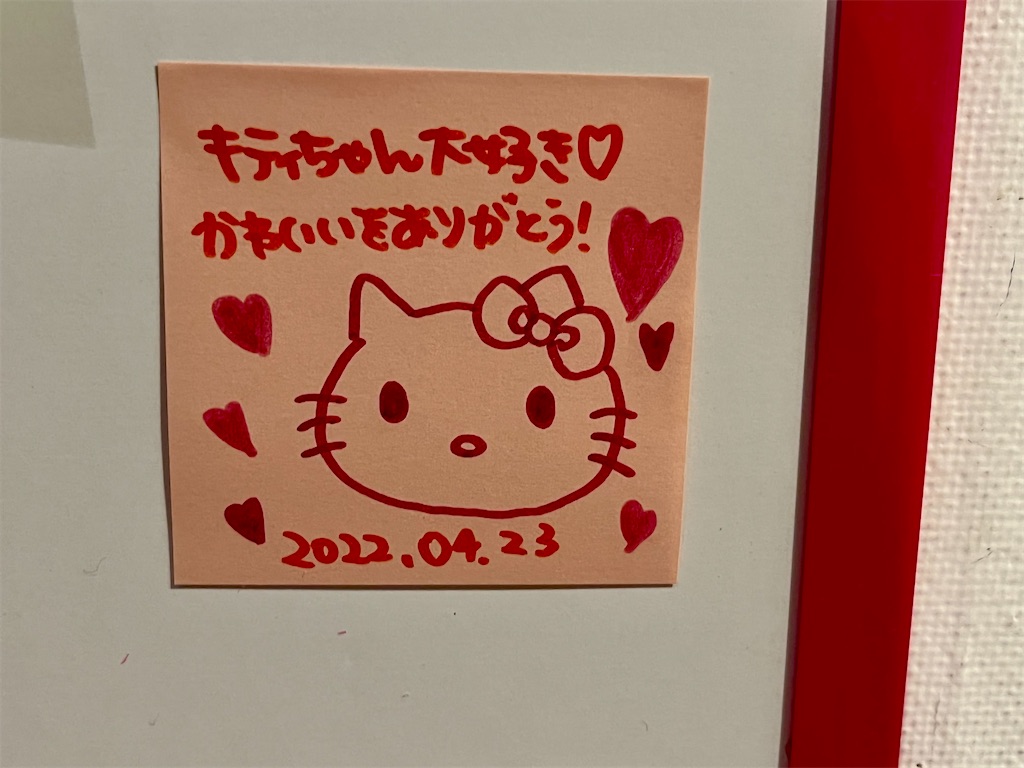 キティちゃん大好き♡
かわいいをありがとう!
2022.04.23